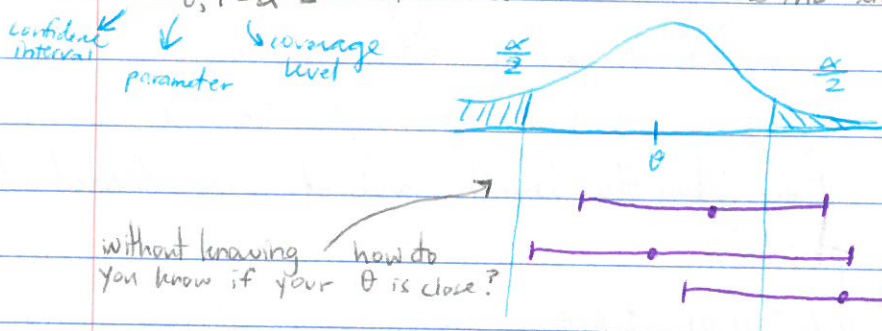 confidence
interval
parameter
coverage
level
α/2
α/2
θ
without knowing how do
you know if your θ is close?